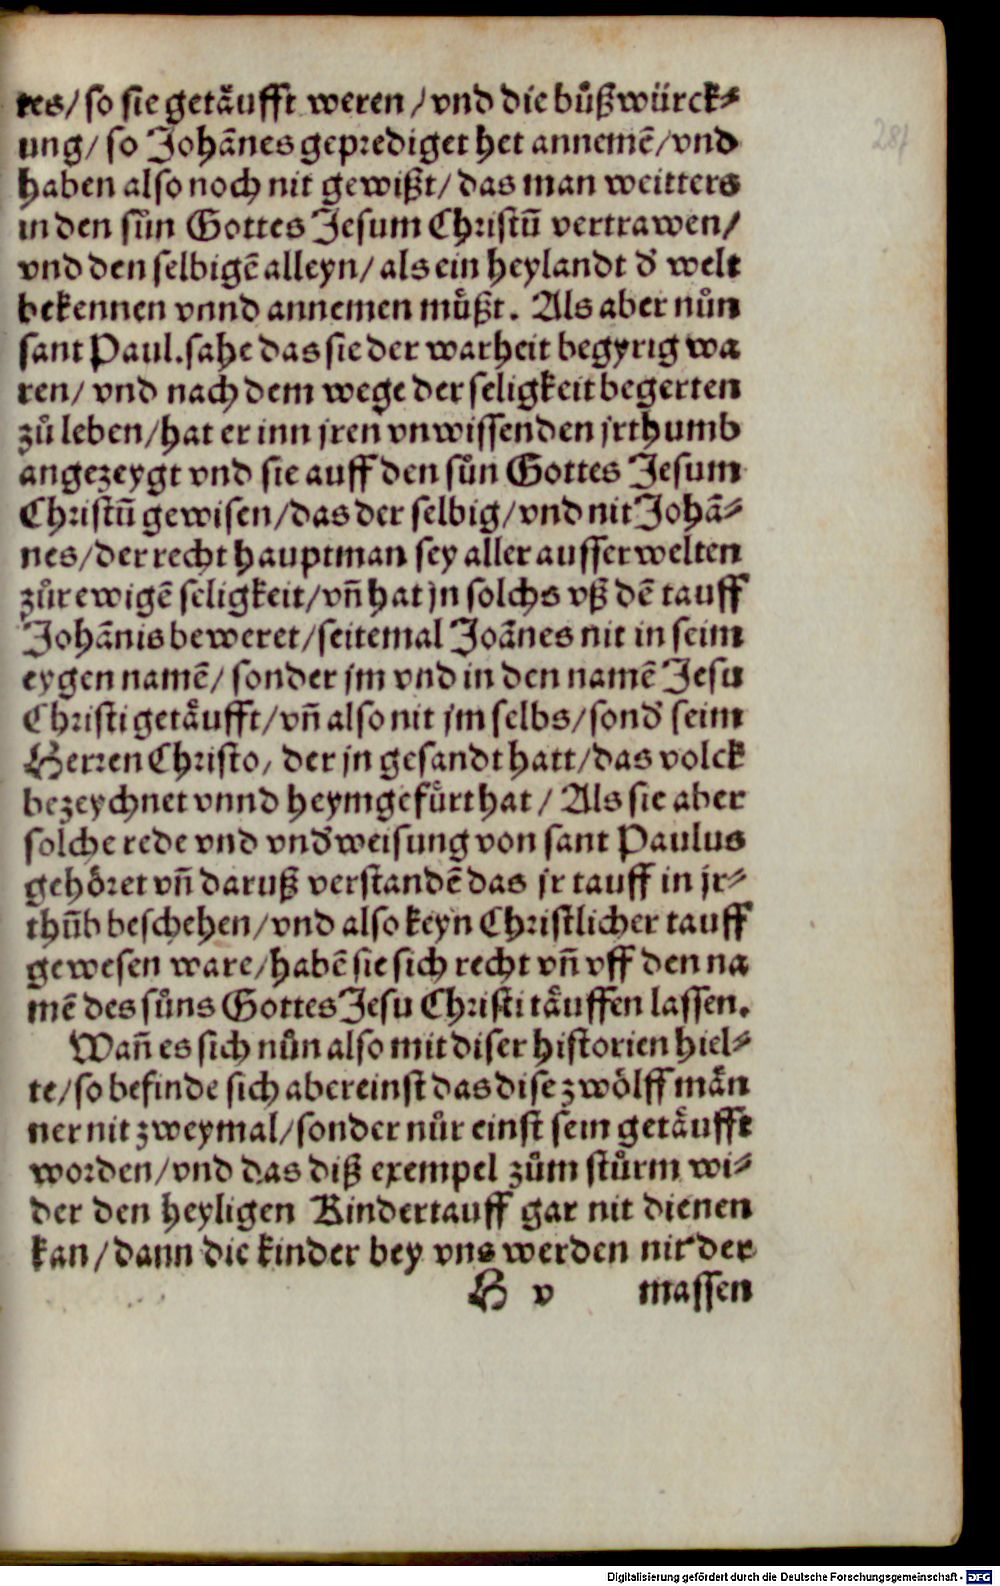 tes/ so sie getaͤufft weren / vnd die buͦßwürck⸗
ung/ so Johānes geprediget het annemē/ vnd
haben also noch nit gewißt/ das man weitters
in den suͦn Gottes Jesum Christū vertrawen/
vnd den selbigē alleyn/ als ein heylandt d' welt
bekennen vnnd annemen muͤßt. Als aber nuͦn
sant Paul. sahe das sie der warheit begyrig wa
ren/ vnd nach dem wege der seligkeit begerten
zuͦ leben/ hat er inn jren vnwissenden jrthumb
angezeygt vnd sie auff den suͦn Gottes Jesum
Christū gewisen/ das der selbig/ vnd nit Johā⸗
nes/ der recht hauptman sey aller ausserwelten
zuͦr ewigē seligkeit/ vn̄ hat jn solchs vß dē tauff
Johānis beweret/ seitemal Joānes nit in seim
eygen namē/ sonder jm vnd in den namē Jesu
Christi getaͤufft/ vn̄ also nit jm selbs/ sond' seim
Herren Christo, der jn gesandt hatt/ das volck
bezeychnet vnnd heymgefuͤrt hat / Als sie aber
solche rede vnd vnd'weisung von sant Paulus
gehoͤret vn̄ daruß verstandē das jr tauff in jr⸗
thūb beschehen/ vnd also keyn Christlicher tauff
gewesen ware/ habē sie sich recht vn̄ vff den na
mē des suͦns Gottes Jesu Christi taͤuffen lassen.
Wan̄ es sich nuͦn also mit diser historien hiel⸗
te/ so befinde sich abereinst das dise zwoͤlff maͤn
ner nit zweymal/ sonder nuͦr einst sein getaͤufft
worden/ vnd das diß exempel zuͦm stuͦrm wi⸗
der den heyligen Kindertauff gar nit dienen
kan/ dann die kinder bey vns werden nit der
H v massen
281
Digitalisierung gefördert durch die Deutsche Forschungsgemeinschaft - DFG